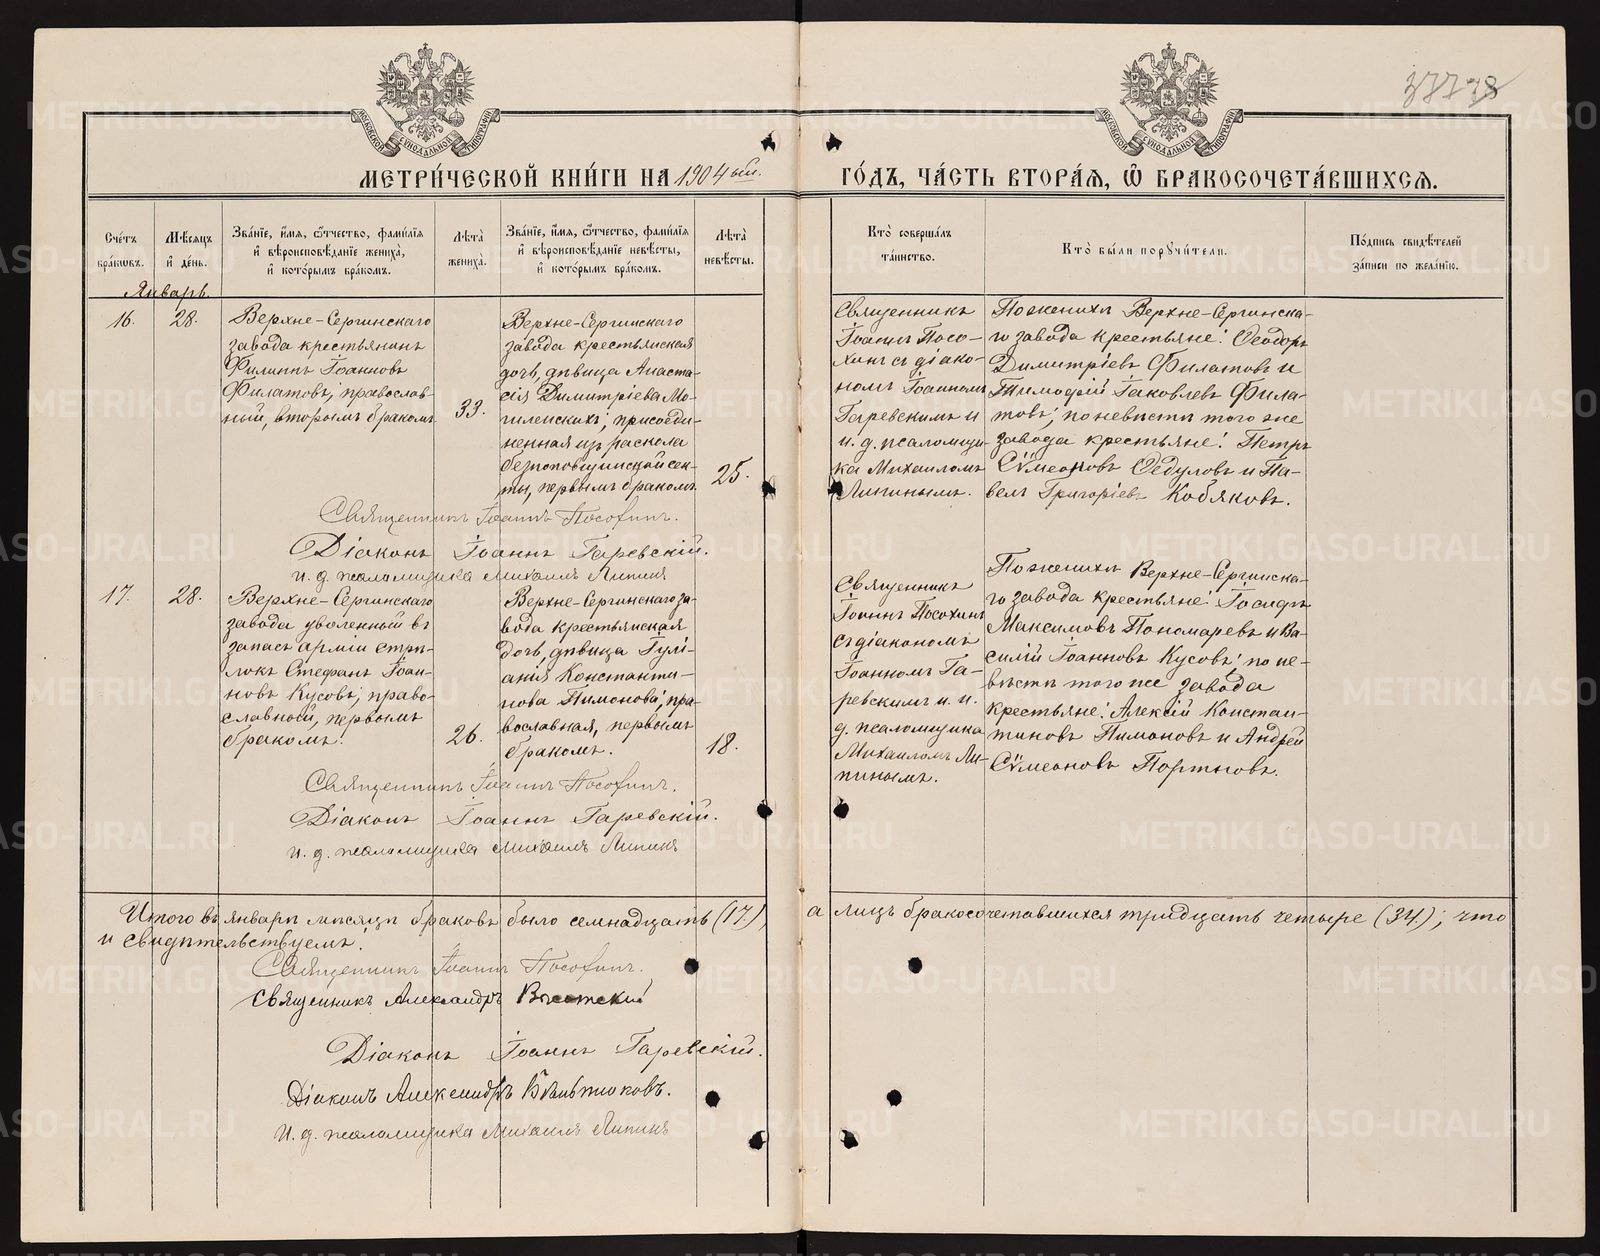 МОСКОВСКОЙ СУНОДАЛЬНОЙ ТИПОГРАФІИ
МОСКОВСКОЙ СУНОДАЛЬНОЙ ТИПОГРАФІИ
МЕТРИ́ЧЕСКОЙ КНИ́ГИ НА 1904ый.
ГО́ДЪ, ЧА́СТЬ ВТОРА́Я, Ѡ БРАКОСОЧЕТА́ВШИХСЯ.
Сче́тъ бра́кѡвъ.
Мѣ́сяцъ и҆ де́нь.
Зва́нїе, и҆́мя, ѻ҆́тчество, фами́лїя
и҆ вѣроисповѣ́данїе жениха̀,
и҆ кото́рымъ бра́комъ.
Лѣ́та̀ жениха̀.
Зва́нїе, и҆́мя, ѻ҆́тчество, фами́лїя
и҆ вѣроисповѣ́данїе невѣ́сты,
и҆ кото́рымъ бра́комъ.
Лѣ́та̀ невѣ́сты.
Кто̀ соверша́лъ
та́инство.
Кто̀ бы́ли порꙋчи́тели.
По́дпись свидѣ́телей
за́писи по жела́нїю.
Январь.
16.
28.
Верхне-Сергинскаго
завода крестьянинъ
Филиппъ Іоанновъ
Филатовъ, православ-
ный, вторымъ бракомъ.
33.
Верхне-Сергинскаго
завода крестьянская
дочь, дѣвица Анаста-
сія Димитріева Мо-
гиленскихъ, присоеди-
ненная изъ раскола
безпоповщинской сек-
ты, первымъ бракомъ.
25.
Священникъ
Іоаннъ Посо-
хинъ съ діако-
номъ Іоанномъ
Гаревскимъ и
и. д. псаломщи-
ка Михаиломъ
Липинымъ.
По женихѣ Верхне-Сергинска-
го завода крестьяне: Ѳеодоръ
Димитріевъ Филатовъ и
Тимофей Іаковлевъ Фила-
товъ; по невѣстѣ того же
завода крестьяне: Петръ
Сѵмеоновъ Ѳедуловъ и Па-
велъ Григоріевъ Кобяковъ.
Священникъ Іоаннъ Посохинъ.
Діаконъ Іоаннъ Гаревскій.
и. д. псаломщика Михаилъ Липинъ
17.
28.
Верхне-Сергинскаго
завода уволенный въ
запасъ арміи стрѣ-
локъ Стефанъ Іоан-
новъ Кусовъ, право-
славный, первымъ
бракомъ.
26.
Верхне-Сергинскаго за-
вода крестьянская
дочь, дѣвица Іулі-
анія Константи-
нова Пимонова, пра-
вославная, первымъ
бракомъ.
18.
Священникъ
Іоаннъ Посохинъ
съ діакономъ
Іоанномъ Га-
ревскимъ и и.
д. псаломщика
Михаиломъ Ли-
пинымъ.
По женихѣ Верхне-Сергинска-
го завода крестьяне: Іосифъ
Максимовъ Пономаревъ и Ва-
силій Іоанновъ Кусовъ; по не-
вѣстѣ того же завода
крестьяне: Алексій Констан-
тиновъ Пимоновъ и Андрей
Сѵмеоновъ Портновъ.
Священникъ Іоаннъ Посохинъ.
Діаконъ Іоаннъ Гаревскій.
и. д. псаломщика Михаилъ Липинъ
Итого въ январѣ мѣсяцѣ браковъ было семнадцать (17.), а лицъ бракосочетавшихся тридцать четыре (34.); что
и свидѣтельствуемъ:
Священникъ Іоаннъ Посохинъ.
Священникъ Александръ
Діаконъ Іоаннъ Гаревскій.
Діаконъ Александръ
И. д. псаломщика Михаилъ Липинъ
METRIKI.GASO-URAL.RU